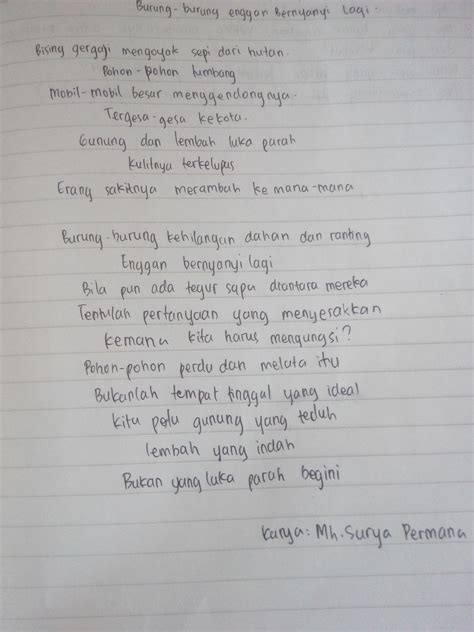 Burung-burung enggan Bernyanyi Lagi.
Bising gergaji mengoyak sepi dari hutan.
Pohon-pohon tumbang
Mobil-mobil besar menggendongnya.
Tergesa-gesa kekota.
Gunung dan lembah luka parah
kulitnya terkelupas
Erang sakitnya merambah ke mana-mana
Burung-burung kehilangan dahan dan ranting
Enggan bernyanyi lagi
Bila pun ada tegur sapa diantara mereka
Tentulah pertanyaan yang menyerakkan
kemana kita harus mengungsi?
Pohon-pohon perdu dan melata itu
Bukanlah tempat tinggal yang ideal
kita perlu gunung yang teduh
lembah yang indah
Bukan yang luka parah begini
karya: Mh. Surya Permana